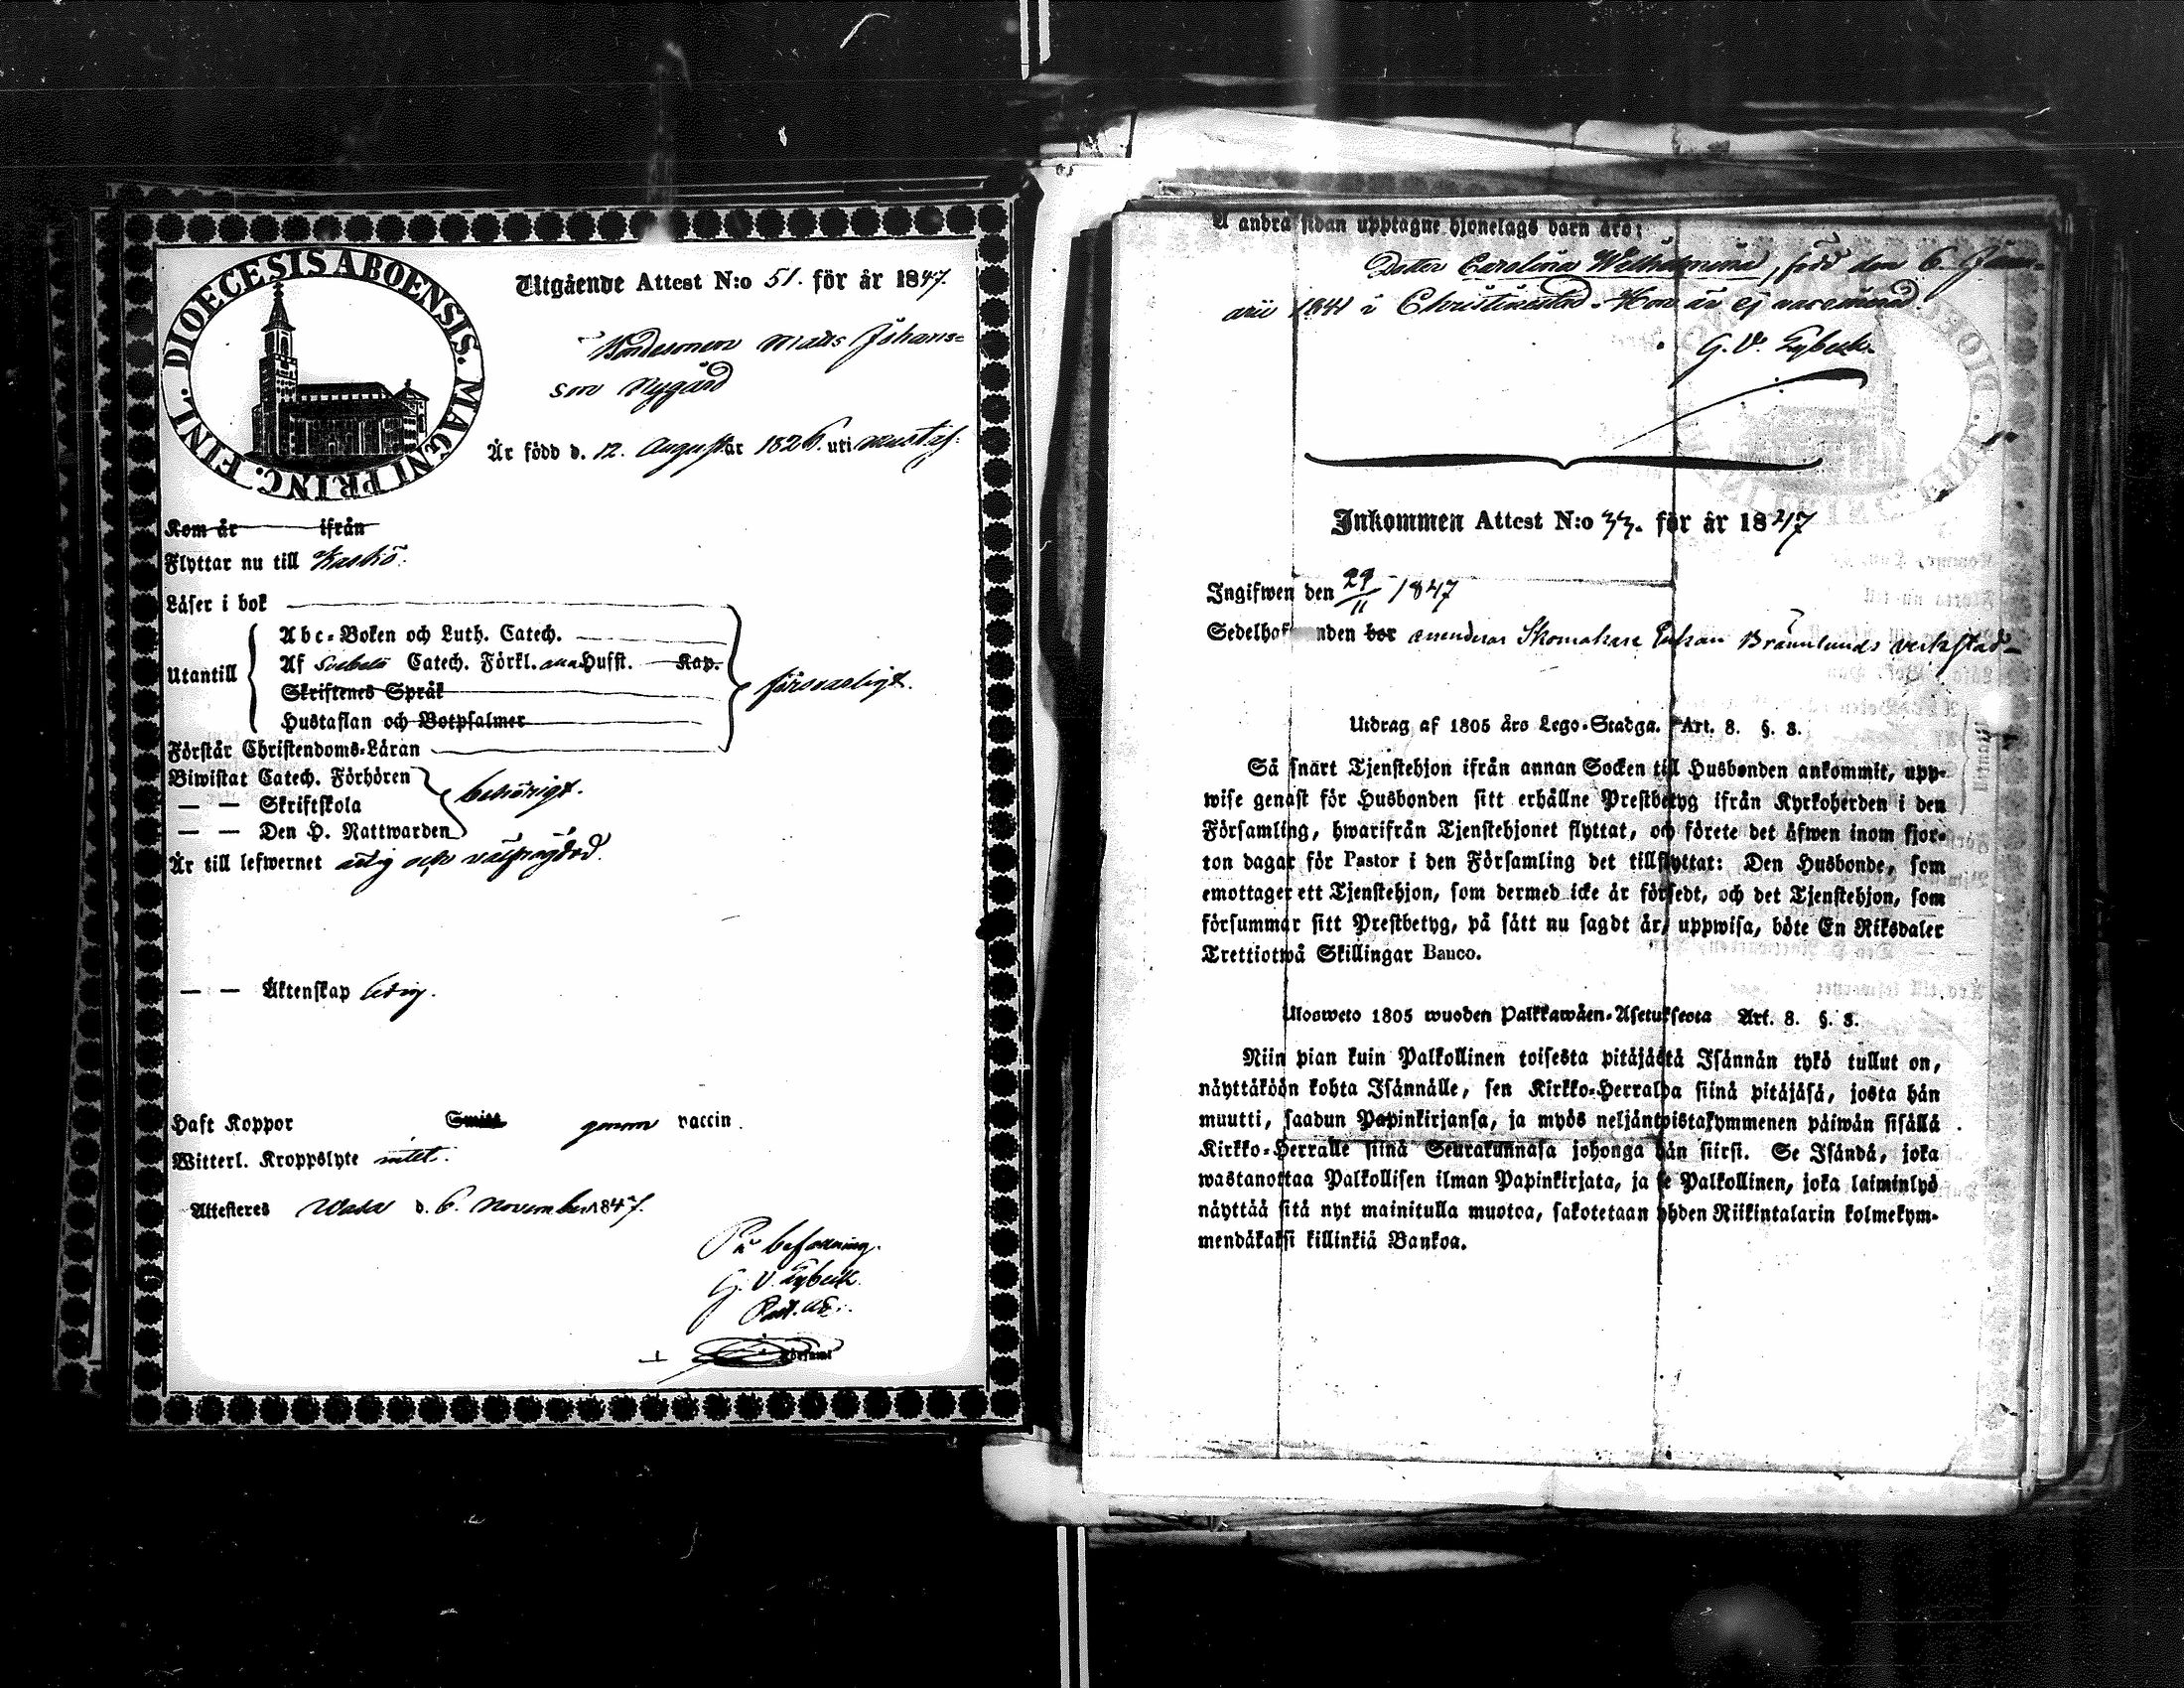 DIOECESIS ABOENSIS. MAGNI PRINC. FINL.
Utgående Attest N:o 51. för år 1847.
Bondesonen Mats Johans-
son Nygård
Är född d. 12. August år 1826. uti
Kom år ifrån
Flyttar nu till Kaskö.
Läser i bok
Utantill
Abc-Boken och Luth. Catech.
Af Svebelii Catech. Förkl. Hufst. Kap.
Skriftenes Språk
Hustaflan och Botpsalmer
försvarligt.
Förstår Christendoms-Läran
Biwistat Catech. Förhören
— — Skriftskola
— — Den H. Nattwarden
behörigt.
Är till lefwernet ärlig och välfrägdad.
— — Äktenskap ledig.
Haft Koppor Smitt genom vaccin.
Witterl. Kroppslyte intet.
Attesteras Wasa d. 6. November 1847.
På befallning.
G. V. Eybeck.
Å andra sidan upptagne hjonelags barn äro:
Dotter Carolina Wilhelmina, född den 6. Janu-
arii 1841 i Christinestad. Hon är ej vaccinerad.
G. V. Eybeck.
Inkommen Attest N:o 33. för år 1847
Ingifwen den 29/11 1847
Sedelhaf nden bor Skomakare Enkan Brännlunds verkstad
Utdrag af 1805 års Lego-Stadga. Art. 8. §. 3.
Så snart Tjenstehjon ifrån annan Socken till Husbonden ankommit, upp-
wise genast för Husbonden sitt erhållne Prestbetyg ifrån Kyrkoherden i den
Församling, hwarifrån Tjenstehjonet flyttat, och förete det äfwen inom fjor-
ton dagar för Pastor i den Församling det tillflyttat: Den Husbonde, som
emottager ett Tjenstehjon, som dermed icke är försedt, och det Tjenstehjon, som
försummar sitt Prestbetyg, på sätt nu sagdt är, uppwisa, böte En Riksdaler
Trettiotwå Skillingar Banco.
Ulosweto 1805 wuoden Palkkawäen-Asetuksesta Art. 8. §. 3.
Niin pian kuin Palkollinen toisesta pitäjästä Isännän tykö tullut on,
näyttäköön kohta Isännälle, sen Kirkko-Herralda siinä pitäjäsä, josta hän
muutti, saadun Papinkirjansa, ja myös neljäntoistakymmenen päiwän sisällä
Kirkko-Herralle siinä Seurakunnasa johonga hän siirsi. Se Isändä, joka
wastanottaa Palkollisen ilman Papinkirjata, ja se Palkollinen, joka laiminlyö
näyttää sitä nyt mainitulla muotoa, sakotetaan yhden Riikintalarin kolmekym-
mendäkaksi killinkiä Bankoa.